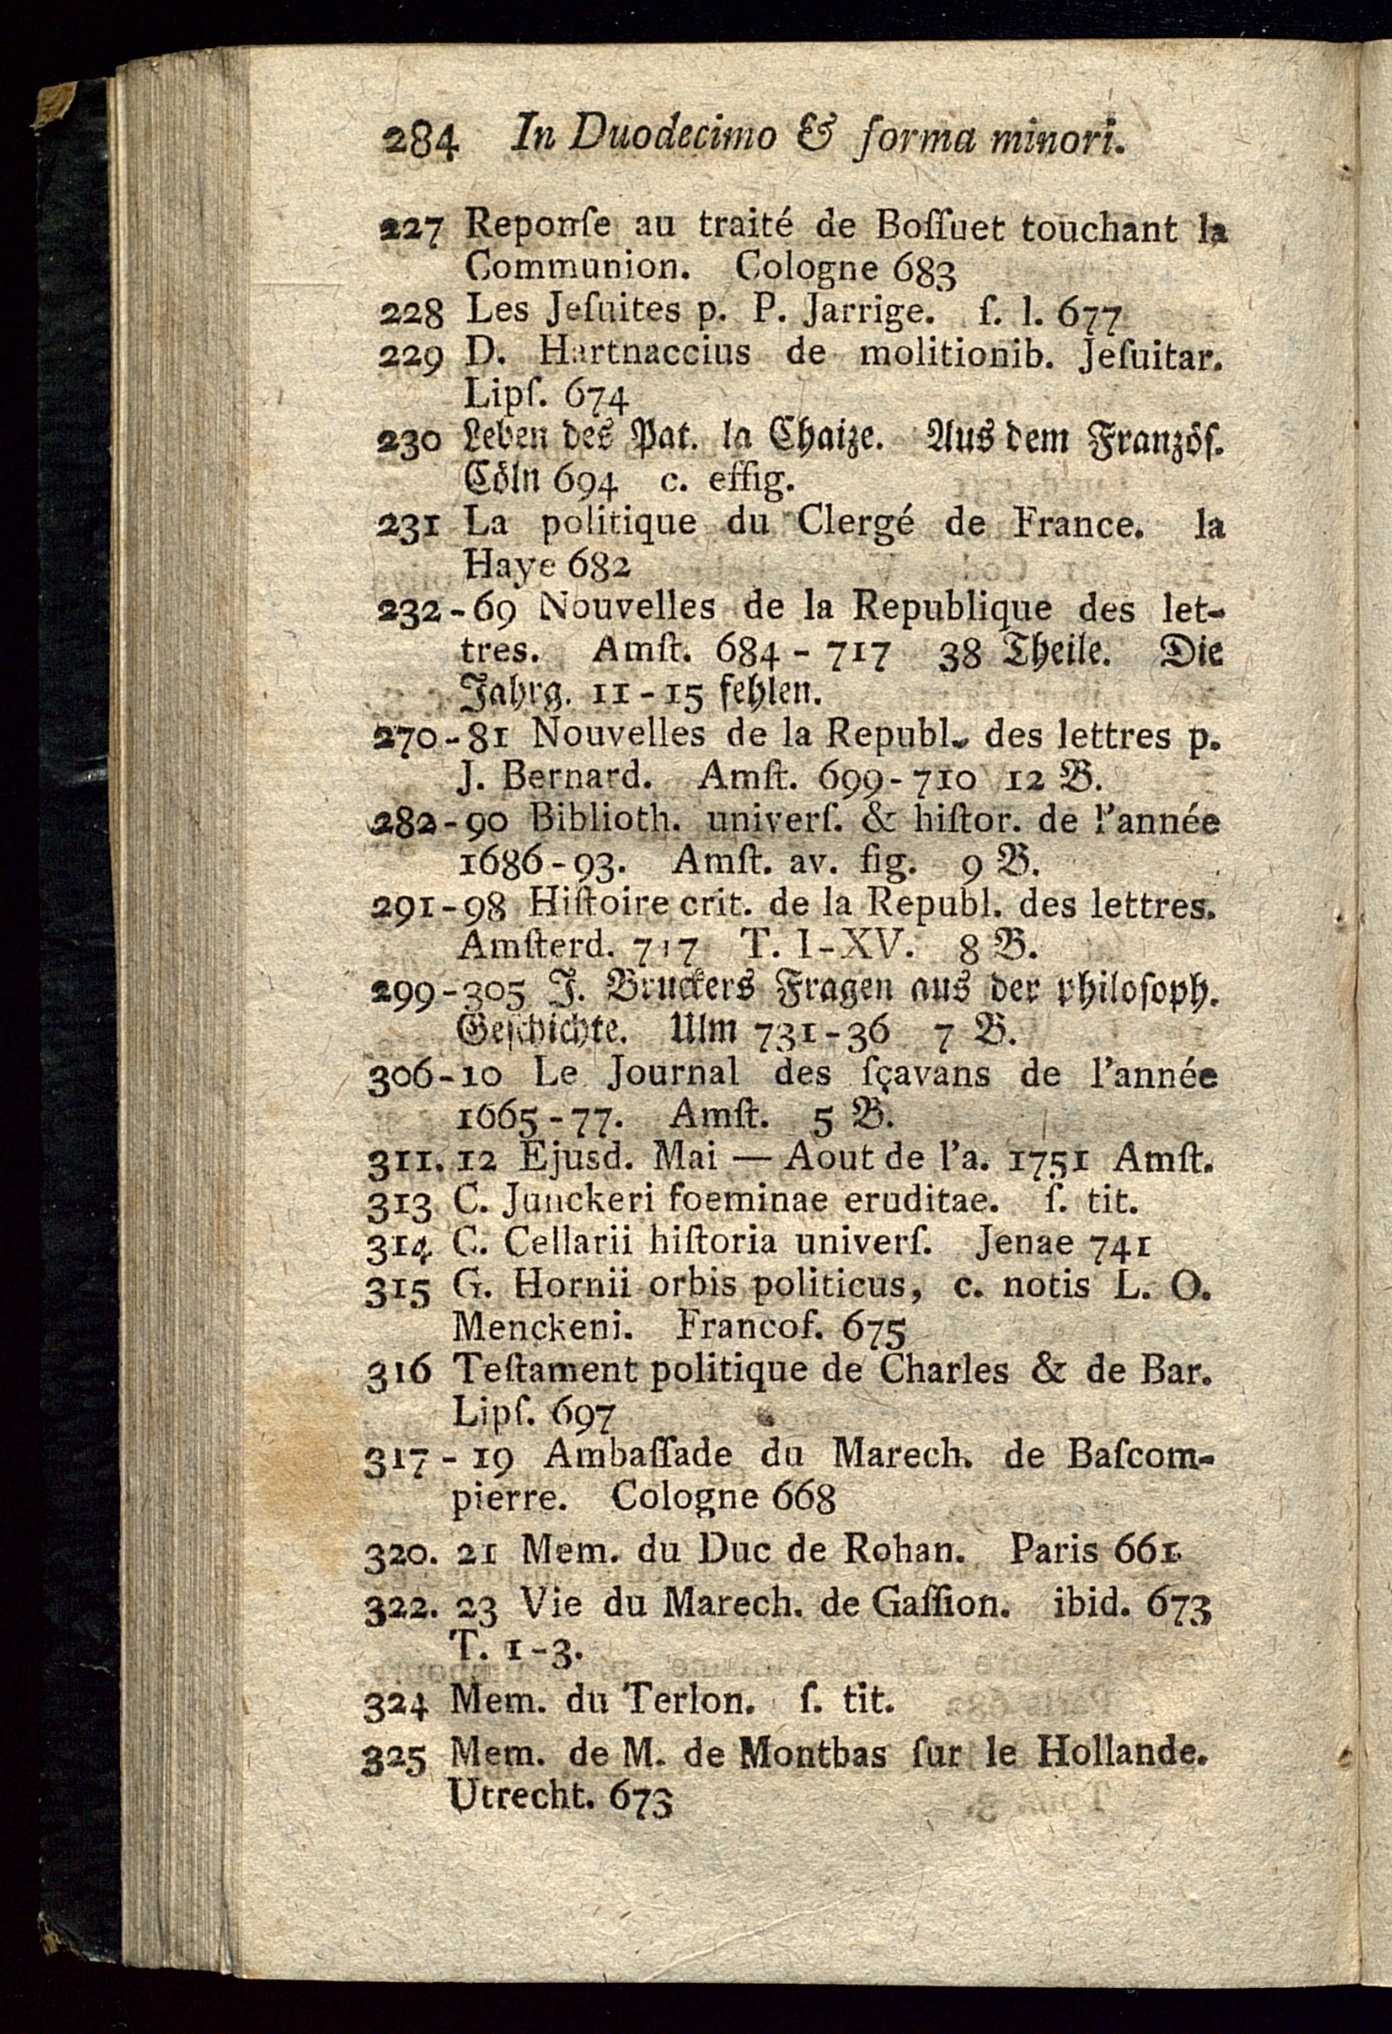 284 In Duodecimo & forma minori.
227 Reponſe au traité de Boſſuet touchant la
Communion. Cologne 683
228 Les Jeſuites p. P. Jarrige. ſ. l. 677
229 D. Hartnaccius de molitionib. Jeſuitar.
Lipſ. 674
230 Leben des Pat. la Chaize. Aus dem Franzöſ.
Cöln 694 c. effig.
231 La politique du Clergé de France. la
Haye 682
232-69 Nouvelles de la Republique des let-
tres. Amſt. 684-717 38 Theile. Die
Jahrg. 11-15 fehlen.
270-81 Nouvelles de la Republ. des lettres p.
J. Bernard. Amſt. 699-710 12 B.
282-90 Biblioth. univerſ. & hiſtor. de l'année
1686-93. Amſt. av. fig. 9 B.
291-98 Hiſtoire crit. de la Republ. des lettres.
Amſterd. 717 T. I-XV. 8 B.
299-305 J. Bruckers Fragen aus der philoſoph.
Geſchichte. Ulm 731-36 7 B.
306-10 Le Journal des ſçavans de l'année
1665-77. Amſt. 5 B.
311. 12 Ejusd. Mai — Aout de l'a. 1751 Amſt.
313 C. Junckeri foeminae eruditae. ſ. tit.
314 C. Cellarii hiſtoria univerſ. Jenae 741
315 G. Hornii orbis politicus, c. notis L. O.
Menckeni. Francof. 675
316 Teſtament politique de Charles & de Bar.
Lipſ. 697
317-19 Ambaſſade du Marech. de Baſcom-
pierre. Cologne 668
320. 21 Mem. du Duc de Rohan. Paris 661
322. 23 Vie du Marech. de Gaſſion. ibid. 673
T. 1-3.
324 Mem. du Terlon. ſ. tit.
325 Mem. de M. de Montbas ſur le Hollande.
Utrecht. 673